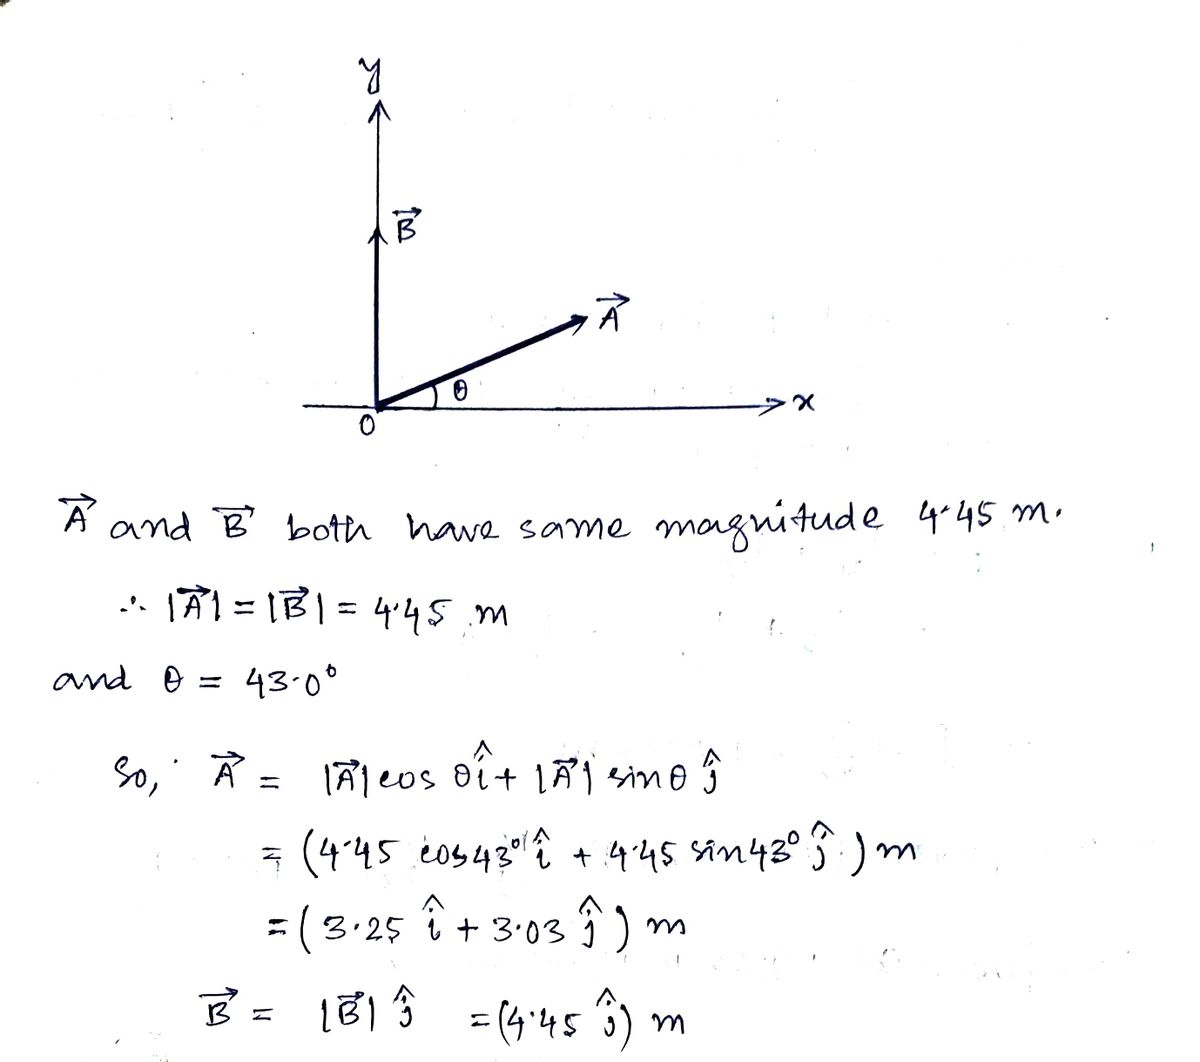 y
B⃗
A⃗
θ
x
O
A⃗ and B⃗ both have same magnitude 4.45 m.
∴ |A⃗| = |B⃗| = 4.45 m
and θ = 43.0°
So, A⃗ = |A⃗| cos θ î + |A⃗| sin θ ĵ
= (4.45 cos 43° î + 4.45 sin 43° ĵ) m
= (3.25 î + 3.03 ĵ) m
B⃗ = |B⃗| ĵ = (4.45 ĵ) m